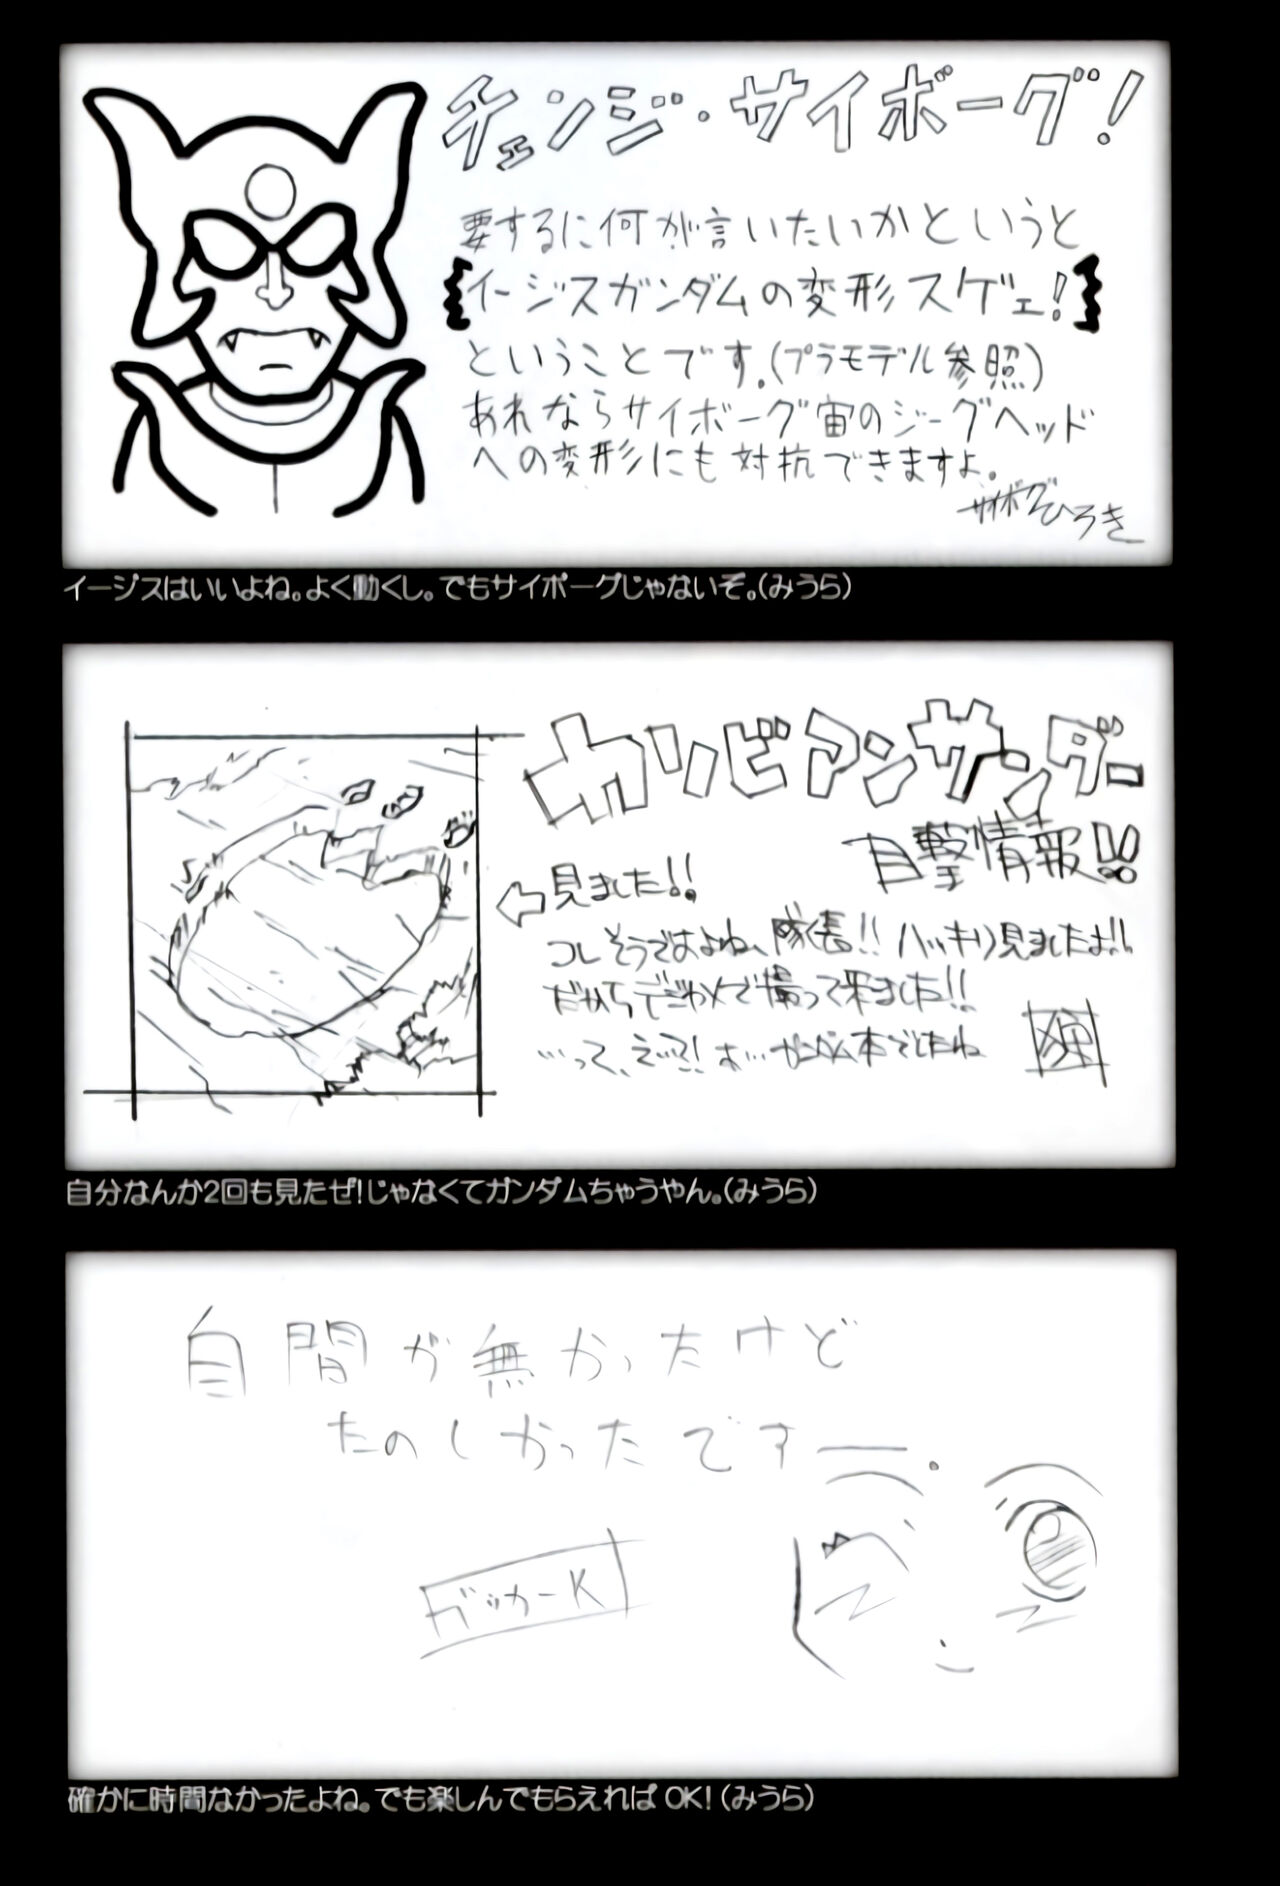 チェンジ・サイボーグ!
要するに何が言いたいかというと
イージスガンダムの変形スゲェ!
ということです。(プラモデル参照)
あれならサイボーグ宙のジーグヘッド
への変形にも対抗できますよ。
サイボーグひろき
イージスはいいよね。よく動くし。でもサイボーグじゃないぞ。(みうら)
カリビアンサンダー
目撃情報!!
見ました!!
コレそうですよね、隊長!! ハッキリ見ましたよ!!
だからデジカメで撮って来ました!!
…って、えっ?! あ…ガンダム本でしたね
自分なんか2回も見たぜ!じゃなくてガンダムちゃうやん。(みうら)
自間が無かったけど
たのしかったですー。
ガッカーK
確かに時間なかったよね。でも楽しんでもらえればOK!(みうら)